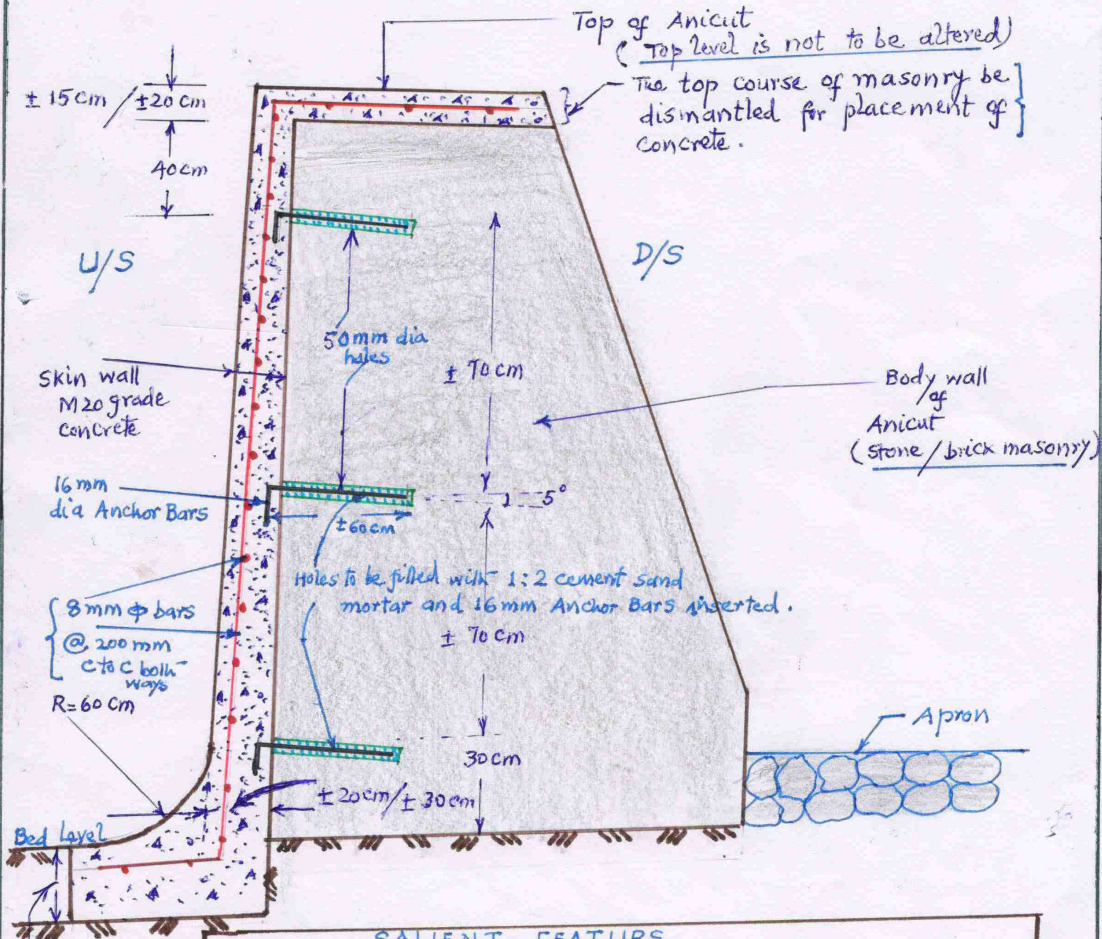 Top of Anicut
( Top level is not to be altered)
± 15 cm / ± 20 cm
The top course of masonry be
dismantled for placement of
concrete.
40 cm
U/S
D/S
50 mm dia
holes
± 70 cm
Skin wall
M20 grade
concrete
Body wall
of
Anicut
(stone / brick masonry)
16 mm
dia Anchor Bars
5°
± 60 cm
Holes to be filled with 1:2 cement sand
mortar and 16 mm Anchor Bars inserted.
8 mm ф bars
@ 200 mm
C to C both
ways
± 70 cm
R=60 cm
Apron
30 cm
± 20 cm / ± 30 cm
Bed Level
SALIENT FEATURS